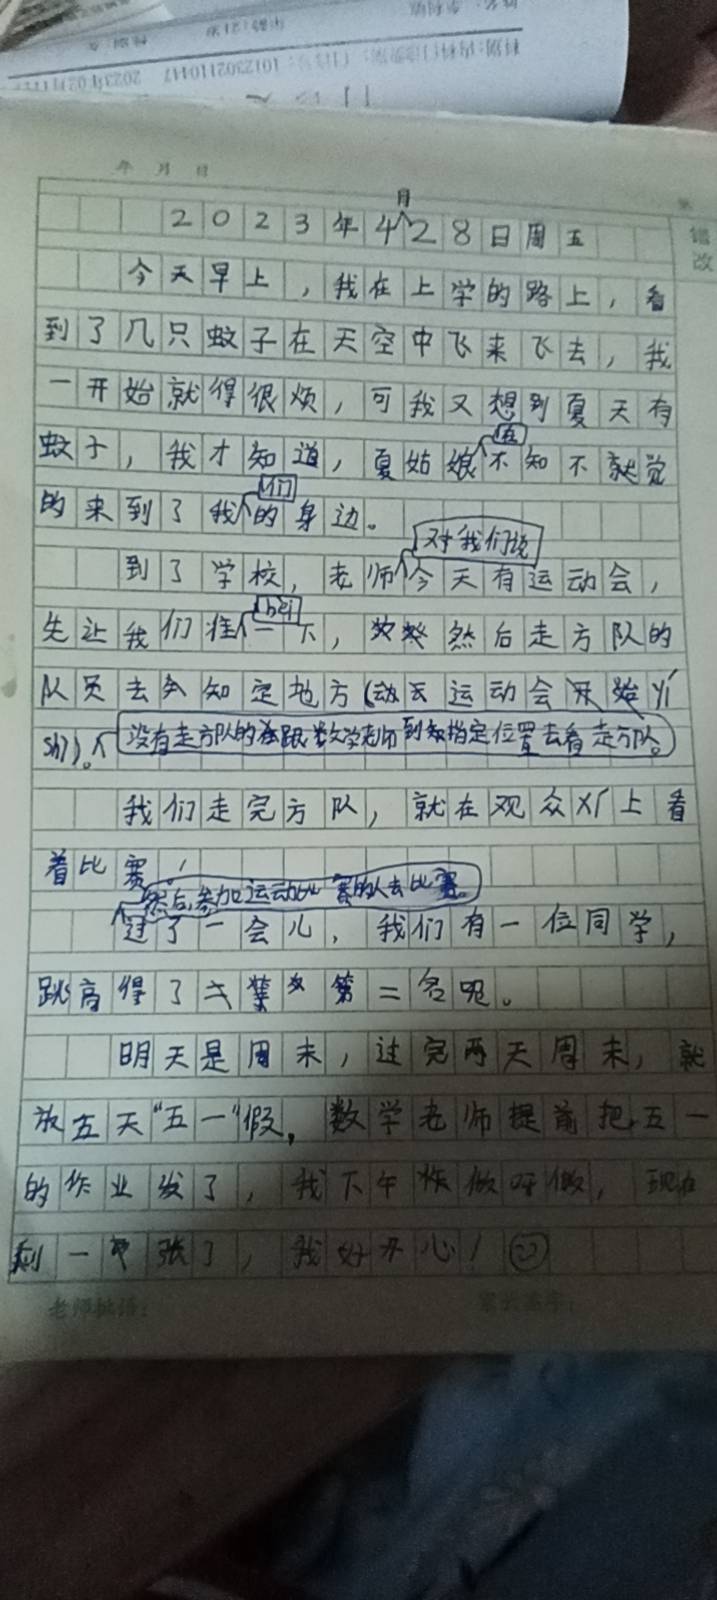 科别:内科门诊
101230211047 2023年02月
年龄:21岁
性别:女
年 月 日
2023年4月28日周五
错改
今天早上,我在上学的路上,看
到了几只蚊子在天空中飞来飞去,我
一开始就得很烦,可我又想到夏天有
蚊子,我才知道,夏姑娘在不知不就觉
的来到了我们的身边。
到了学校,老师对我们说今天有运动会,
先让我们准bèi一下,然后走方队的
队员去知定地方(运动会开始yí
shì)。没有走方队的跟数学老师到指定位置去看走方队。
我们走完方队,就在观众xí上看
着比赛!
然后,参加运动比赛的人去比赛。
过了一会儿,我们有一位同学,
跳高得了第二名呢。
明天是周末,过完两天周末,就
放五天“五一”假,数学老师提前把五一
的作业发了,我下午做呀做,现在
剩一张了,我好开心!
老师批语: